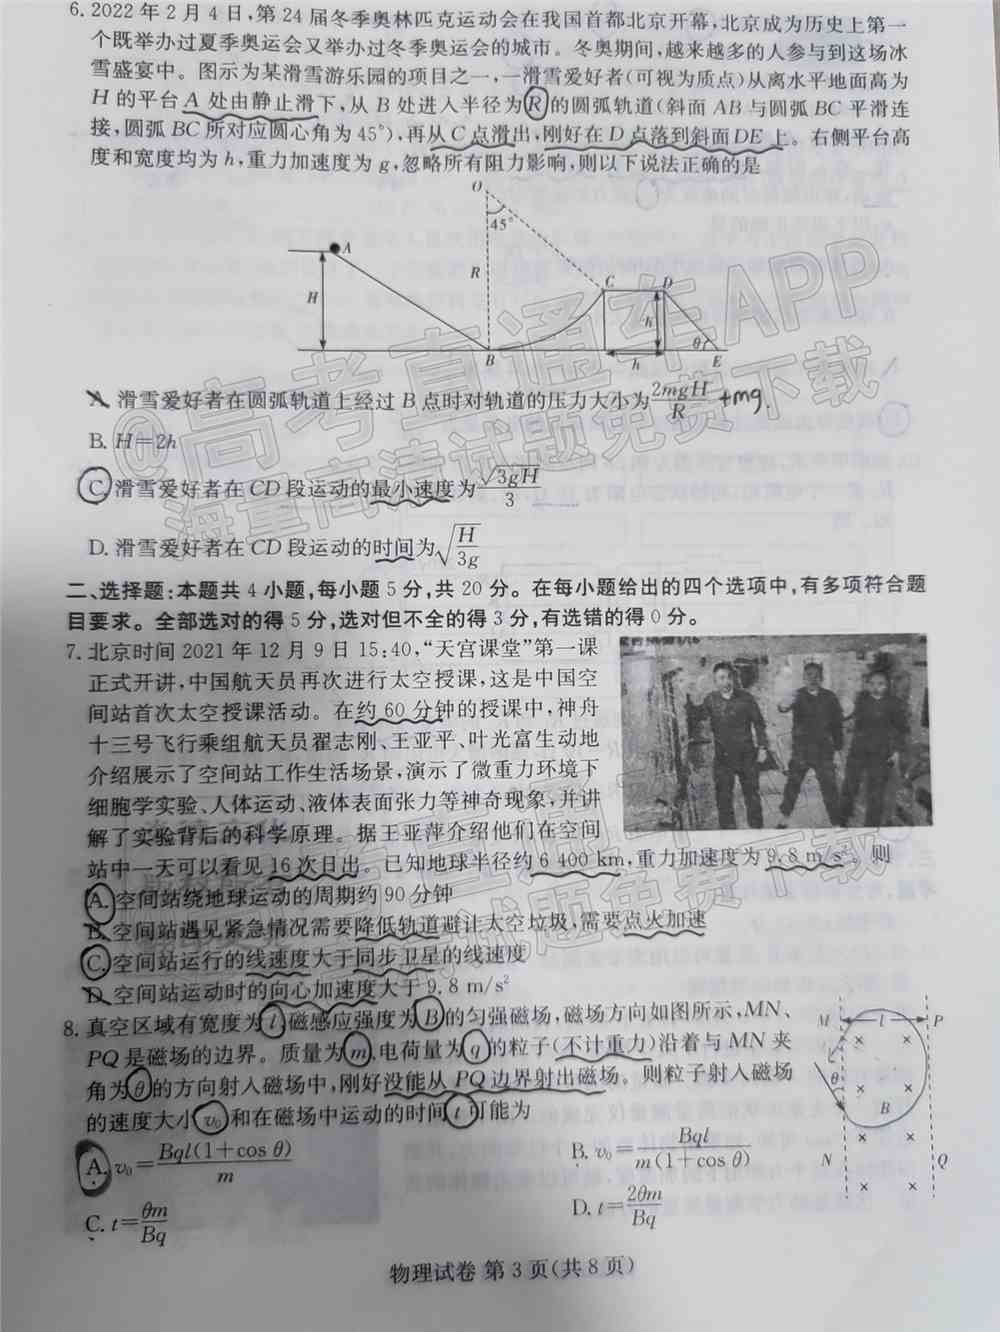 6. 2022 年 2 月 4 日，第 24 届冬季奥林匹克运动会在我国首都北京开幕，北京成为历史上第一
个既举办过夏季奥运会又举办过冬季奥运会的城市。冬奥期间，越来越多的人参与到这场冰
雪盛宴中。图示为某滑雪游乐园的项目之一，一滑雪爱好者(可视为质点)从离水平地面高为
H 的平台 A 处由静止滑下，从 B 处进入半径为 R 的圆弧轨道(斜面 AB 与圆弧 BC 平滑连
接，圆弧 BC 所对应圆心角为 45°)，再从 C 点滑出，刚好在 D 点落到斜面 DE 上。右侧平台高
度和宽度均为 h，重力加速度为 g，忽略所有阻力影响，则以下说法正确的是
O
45°
A
R
H
C D
h
θ
B h E
A. 滑雪爱好者在圆弧轨道上经过 B 点时对轨道的压力大小为 2mgH/R +mg.
B. H=2h
C. 滑雪爱好者在 CD 段运动的最小速度为 √3gH/3
D. 滑雪爱好者在 CD 段运动的时间为 √(H/3g)
二、选择题：本题共 4 小题，每小题 5 分，共 20 分。在每小题给出的四个选项中，有多项符合题
目要求。全部选对的得 5 分，选对但不全的得 3 分，有选错的得 0 分。
7. 北京时间 2021 年 12 月 9 日 15:40，“天宫课堂”第一课
正式开讲，中国航天员再次进行太空授课，这是中国空
间站首次太空授课活动。在约 60 分钟的授课中，神舟
十三号飞行乘组航天员翟志刚、王亚平、叶光富生动地
介绍展示了空间站工作生活场景，演示了微重力环境下
细胞学实验、人体运动、液体表面张力等神奇现象，并讲
解了实验背后的科学原理。据王亚萍介绍他们在空间
站中一天可以看见 16 次日出。已知地球半径约 6 400 km，重力加速度为 9.8 m/s²。则
A. 空间站绕地球运动的周期约 90 分钟
B. 空间站遇见紧急情况需要降低轨道避让太空垃圾，需要点火加速
C. 空间站运行的线速度大于同步卫星的线速度
D. 空间站运动时的向心加速度大于 9.8 m/s²
8. 真空区域有宽度为 l、磁感应强度为 B 的匀强磁场，磁场方向如图所示，MN、
PQ 是磁场的边界。质量为 m、电荷量为 q 的粒子(不计重力)沿着与 MN 夹
角为 θ 的方向射入磁场中，刚好没能从 PQ 边界射出磁场。则粒子射入磁场
的速度大小 v₀ 和在磁场中运动的时间 t 可能为
M l P
θ
B
N Q
A. v₀=Bql(1+cos θ)/m
B. v₀=Bql/m(1+cos θ)
C. t=θm/Bq
D. t=2θm/Bq
物理试卷 第 3 页(共 8 页)
@高考直通车APP
海量高清试题免费下载